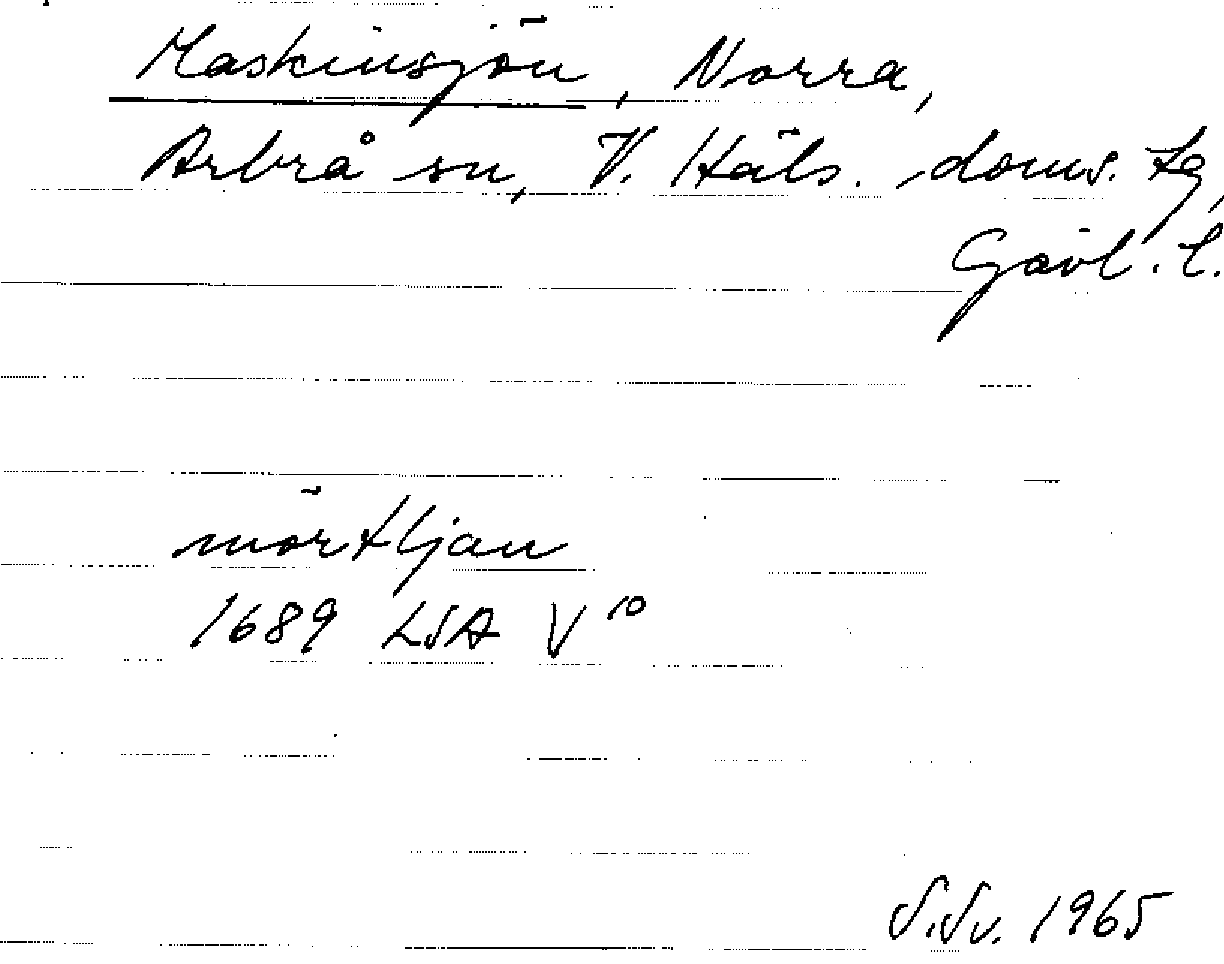 Maskinsjön, Norra,
Arbrå sn, V. Häls. doms. tg,
Gävl. l.
mörtljan
1689 LSA V 10
S.Sv. 1965